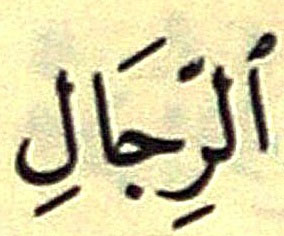 ٱلرِّجَالِ